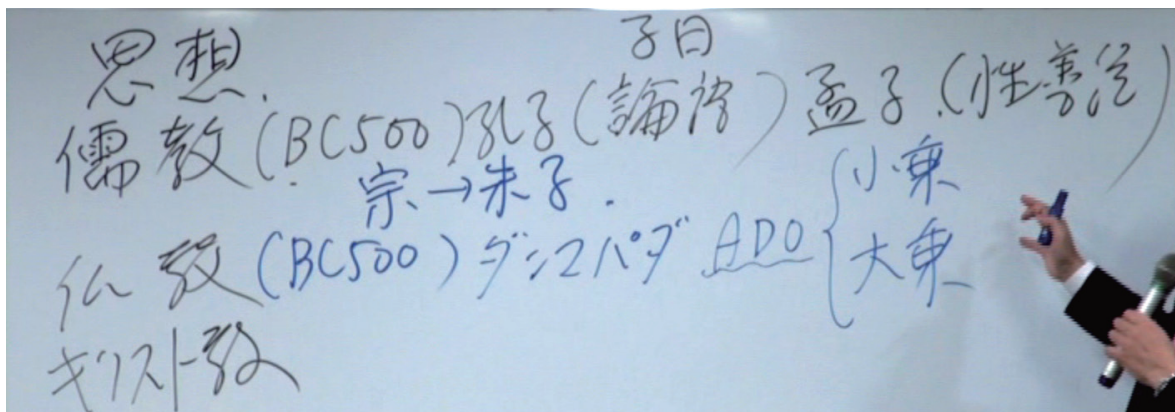 思想.
子曰
儒教(BC500)孔子(論語)孟子.(性善説)
宗→朱子.
仏教(BC500)ダンマパダ AD0{小乗
大乗
キリスト教